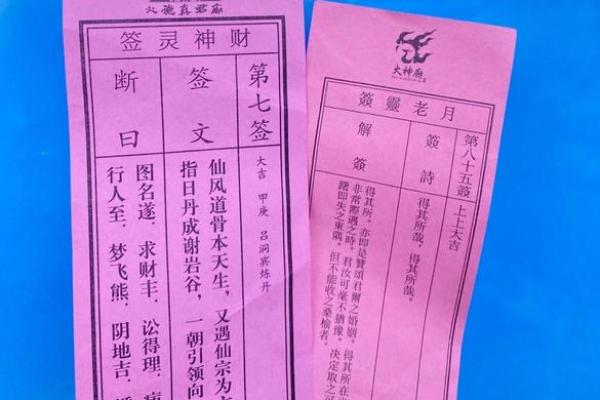 火德真君廟
财神灵签
第七签
大吉 甲庚 吕洞宾炼丹
签文
仙风道骨本天生，又遇仙宗为
指日丹成谢岩谷，一朝引领向
断曰
图名遂．求财丰．讼得理．
行人至．梦飞熊．阴地吉．
火神廟
月老靈簽
第八十五簽 上上大吉
簽詩
得其所哉，得其所哉。
解簽
得其所，亦即是贊頌君爾之婚姻，得其所在
非常際遇之時，君汝可毫不猶豫，決定取之可
躇即失之東隅，但不能收之桑榆者。